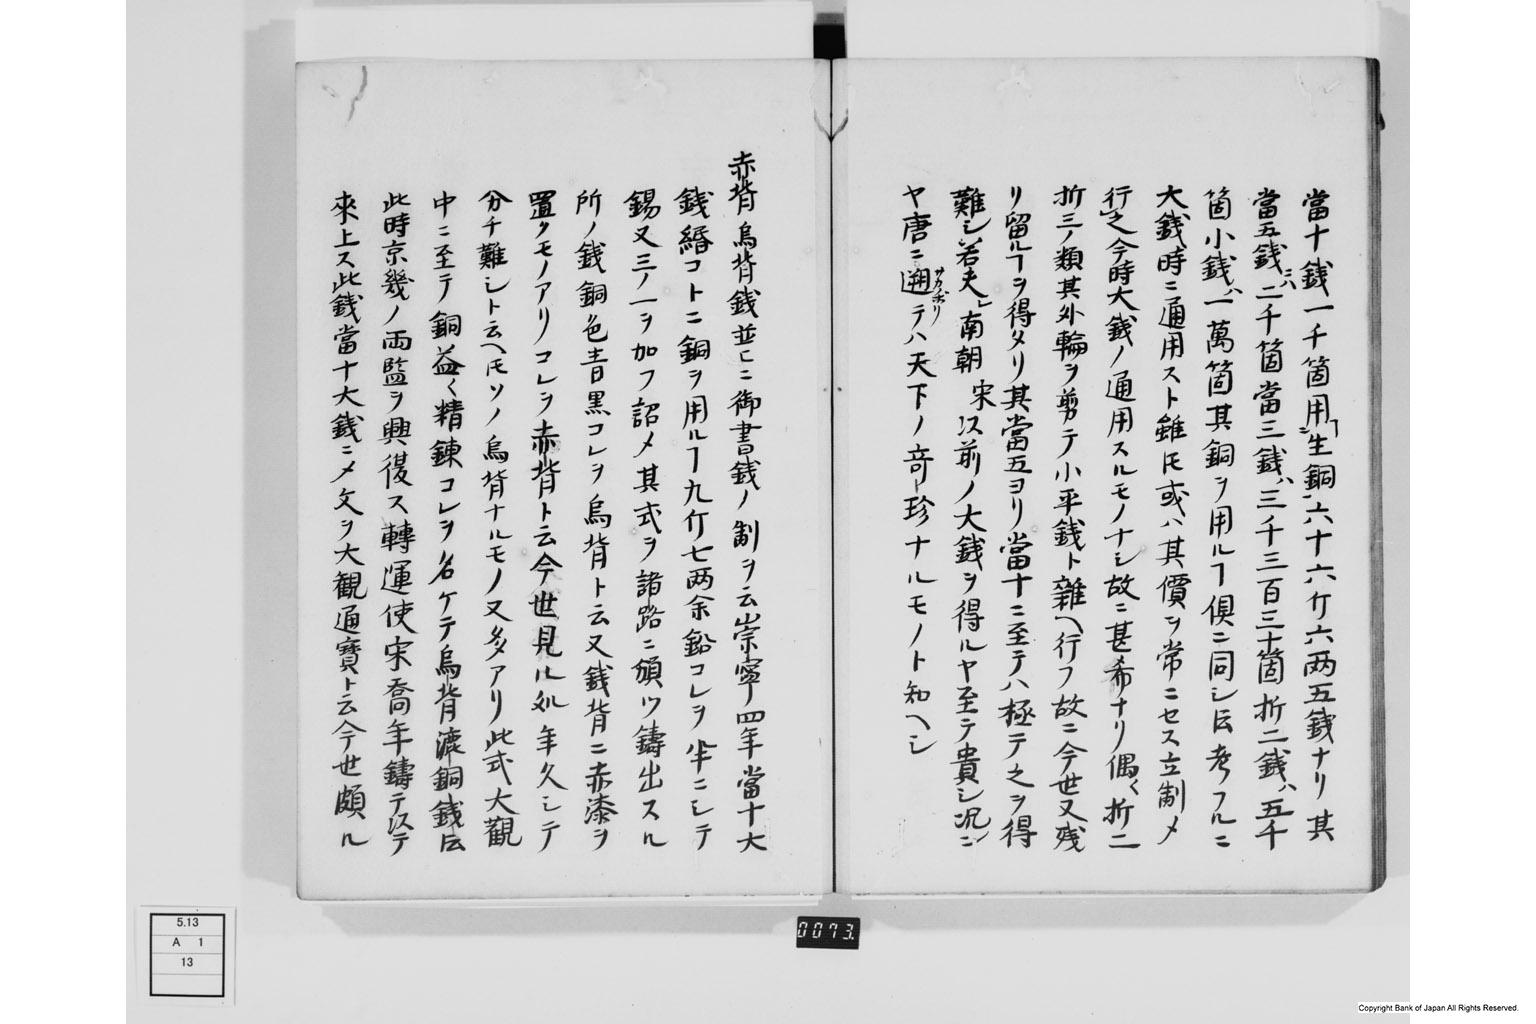 當十銭一千箇用ヿ生銅六十六斤六两五銭ナリ其
當五銭ニハ二千箇當三銭ハ三千三百三十箇折二銭ハ五千
箇小銭ハ一萬箇其銅ヲ用ルヿ倶ニ同シ𫝂考フルニ
大銭時ニ通用スト雖𪜈或ハ其價ヲ常ニセス立制〆
行之今時大銭ノ通用スルモノナシ故ニ甚希ナリ偶〱折二
折三ノ類其外輪ヲ剪テ小平銭ト雜ヘ行フ故ニ今世又残
リ留ルヿヲ得タリ其當五ヨリ當十ニ至テハ極テ之ヲ得
難シ若夫レ南朝宋以前ノ大銭ヲ得ルヤ至テ貴シ况ンニ
ヤ唐ニ遡サカノボリテハ天下ノ竒珍ナルモノト知ヘシ
赤背烏背銭並ヒニ御書銭ノ制ヲ云崇寧四年當十大
銭緡コトニ銅ヲ用ルヿ九斤七两余鉛コレヲ半ニシテ
錫又三ノ一ヲ加フ詔〆其式ヲ諸路ニ頒ツ鑄出スル
所ノ銭銅色青黒コレヲ烏背ト云又銭背ニ赤漆ヲ
置クモノアリコレヲ赤背ト云今世見ル処年久シテ
分チ難シト云ヘ𪜈ソノ烏背ナルモノ又多アリ此式大觀
中ニ至テ銅益〱精錬コレヲ名ケテ烏背漉銅銭𫝂
此時京幾ノ両監ヲ興復ス轉運使宋喬年鑄テ以テ
來上ス此銭當十大銭ニ〆文ヲ大観通寳ト云今世頗ル
0073.
5.13
A 1
13
Copyright Bank of Japan All Rights Reserved.